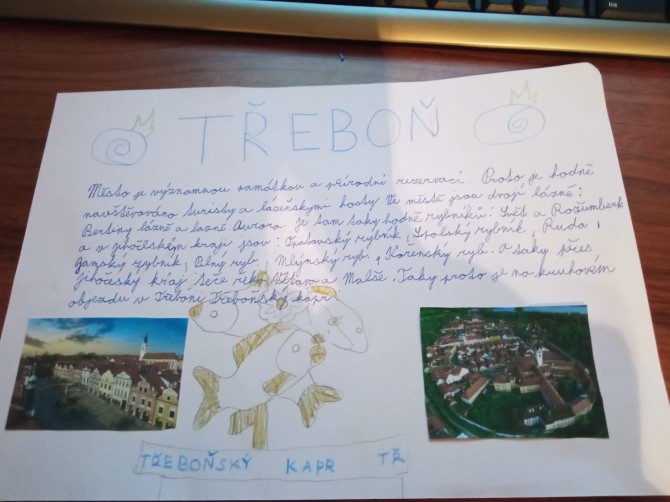 TŘEBOŇ
Město je významnou památkou a přírodní rezervací. Proto je hodně
navštěvováno turisty a lázeňskými hosty. Ve městě jsou dvojí lázně:
Bertiny lázně a lazně Aurora. Je tam taky hodně rybníků: Svět a Rožumberk
a v jihočeském kraji jsou: rybník, Spolský rybník, Ruda,
rybník, ryb., Mlýnský ryb., ryb. A taky přes
jihočeský kraj teče a Malše. Taky proto je na
objezdu v Třeboni Třeboňský kapr
TŘEBOŇSKÝ KAPR TŘ